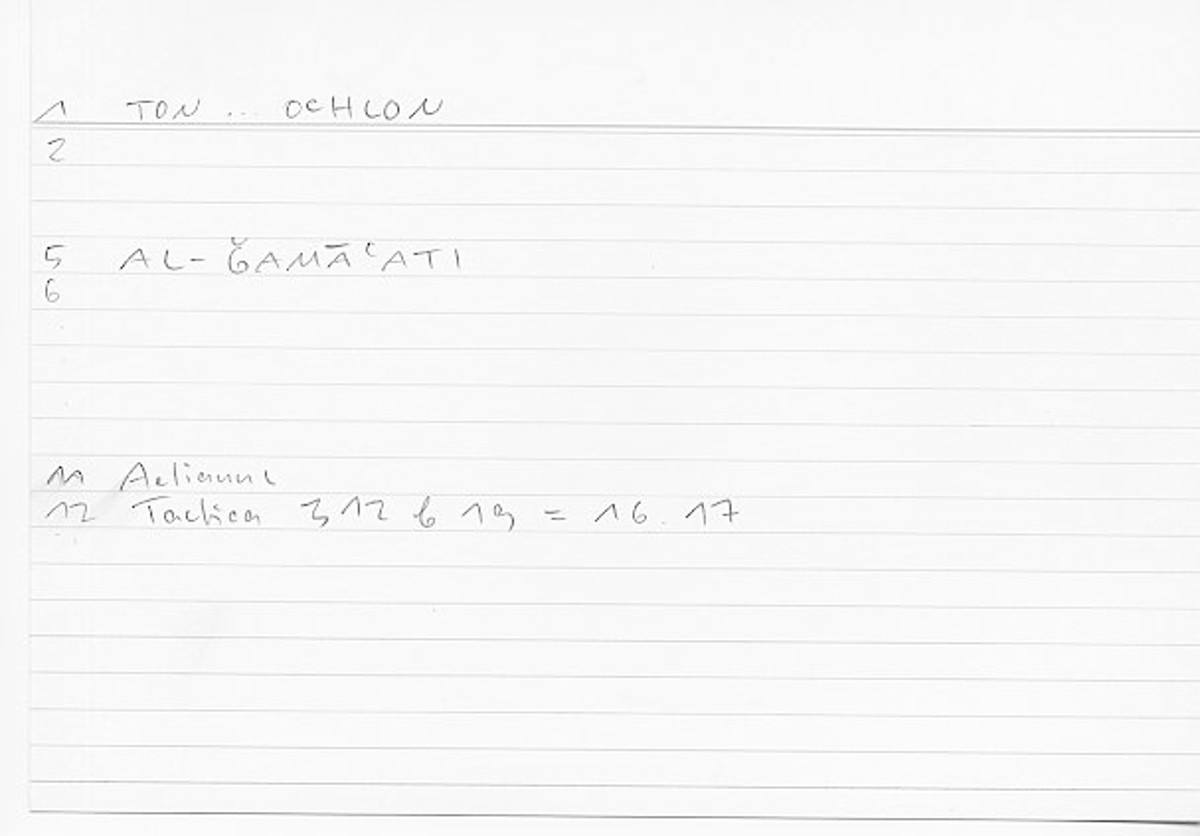 1 TON ... OCHLON
2
5 AL-ǦAMĀʿATI
6
11 Aelianus
12 Tactica 312 b 19 = 16.17